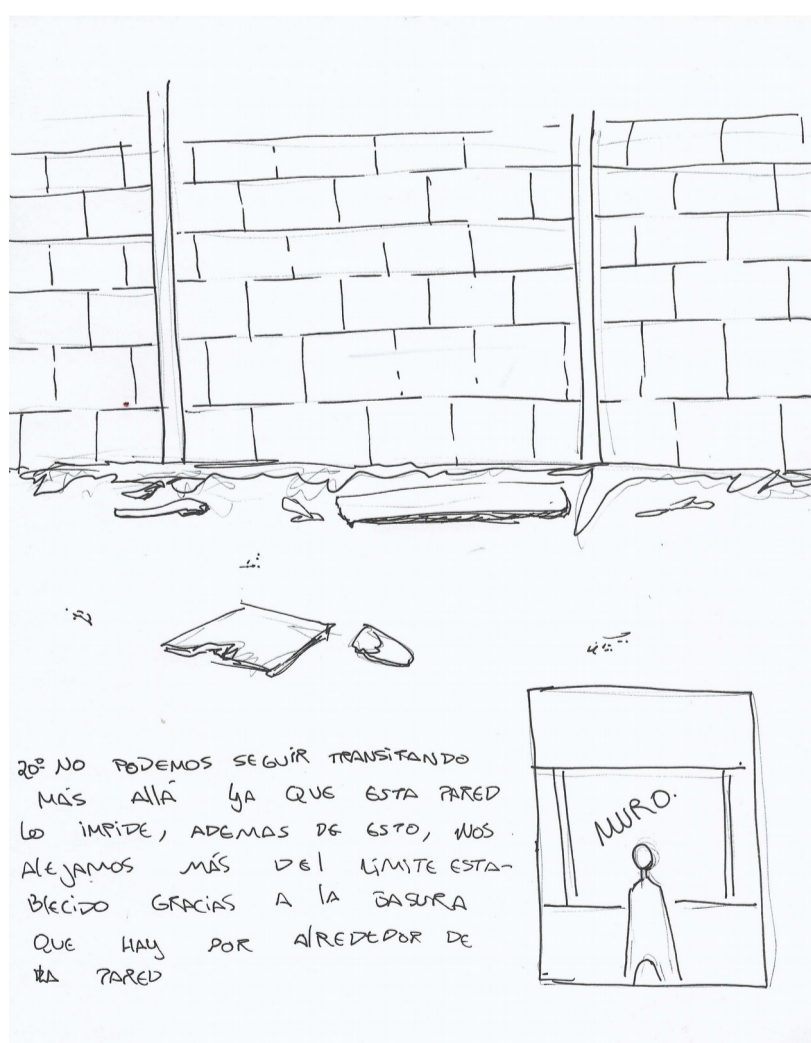 20º NO PODEMOS SEGUIR TRANSITANDO
MÁS ALLÁ YA QUE ESTA PARED
LO IMPIDE, ADEMAS DE ESTO, NOS
ALEJAMOS MÁS DEL LÍMITE ESTA-
BLECIDO GRACIAS A LA BASURA
QUE HAY POR ALREDEDOR DE
LA PARED
MURO.